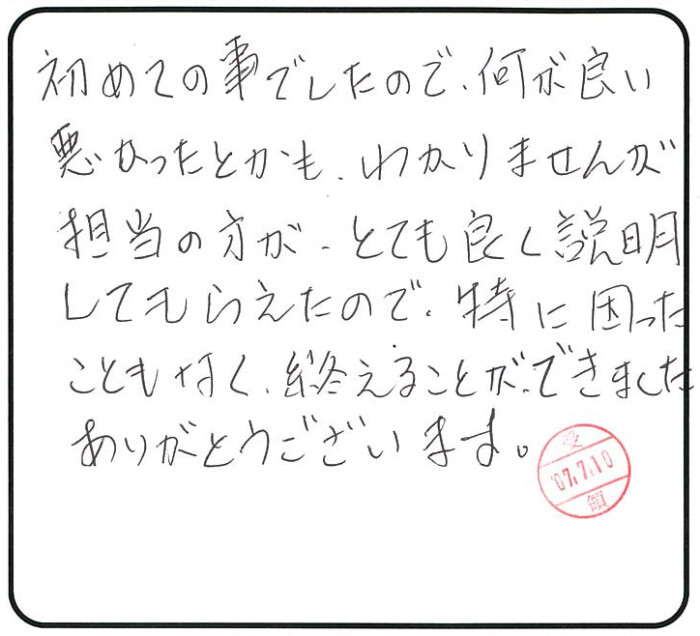 初めての事でしたので、何が良い
悪かったとかも、わかりませんが
担当の方が、とても良く説明
してもらえたので、特に困った
こともなく、終えることができました
ありがとうございます。
受
'07.7.10
領